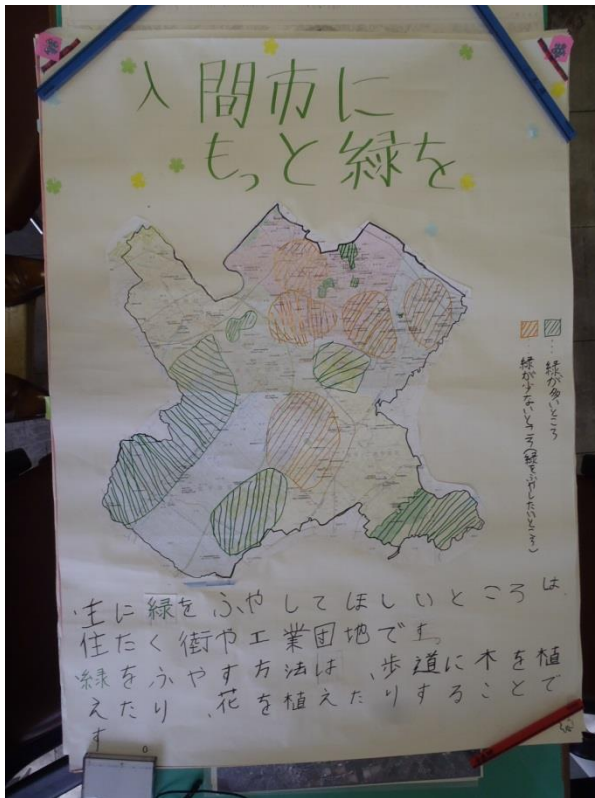 入間市に
もっと緑を
緑が多いところ
緑が少ないところ(緑をふやしたいところ)
・主に緑をふやしてほしいところは、
住たく街や工業団地です。
・緑をふやす方法は、歩道に木を植
えたり、花を植えたりすることで
す